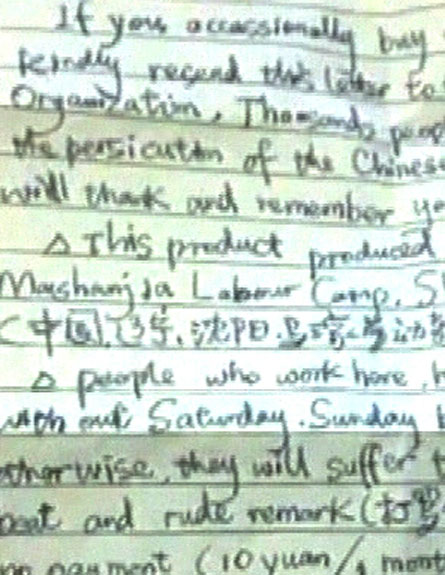 If you occassionally buy
kindly resend this letter to
Organization, Thousands peop
the persicution of the Chinese
will thank and remember yo
△ This product produced
Mashanjia Labour Camp, S
(中国,辽宁,沈阳,马三家劳动教
△ people who work here, h
with out Saturday, Sunday
otherwise, they will suffer t
beat and rude remark (打骂
no payment (10 yuan/1 month